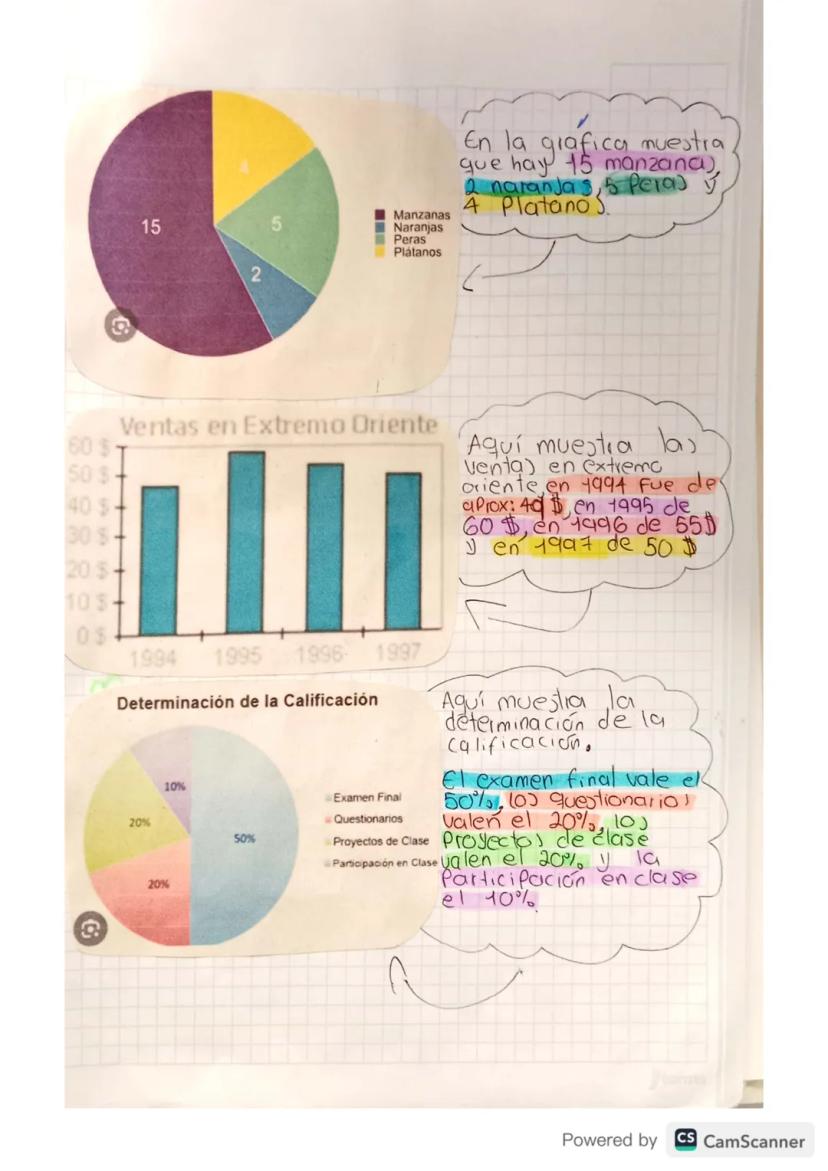 4
15
5
2
Manzanas
Naranjas
Peras
Plátanos
En la gráfica muestra
que hay 15 manzanas,
2 naranjas, 5 Peras y
4 Platanos.
Ventas en Extremo Oriente
60 $
50 $
40 $
30 $
20 $
10 $
0 $
1994
1995
1996
1997
Aquí muestra las
ventas en extremo
oriente, en 1994 fue de
aprox: 49 $, en 1995 de
60 $, en 1996 de 55$
y en 1997 de 50 $
Determinación de la Calificación
10%
20%
50%
20%
Examen Final
Questionarios
Proyectos de Clase
Participación en Clase
Aquí muestra la
determinación de la
calificación.
El examen final vale el
50%, los questionarios
valen el 20%, los
Proyectos de clase
valen el 20% y la
Participación en clase
el 10%.
Powered by CS CamScanner